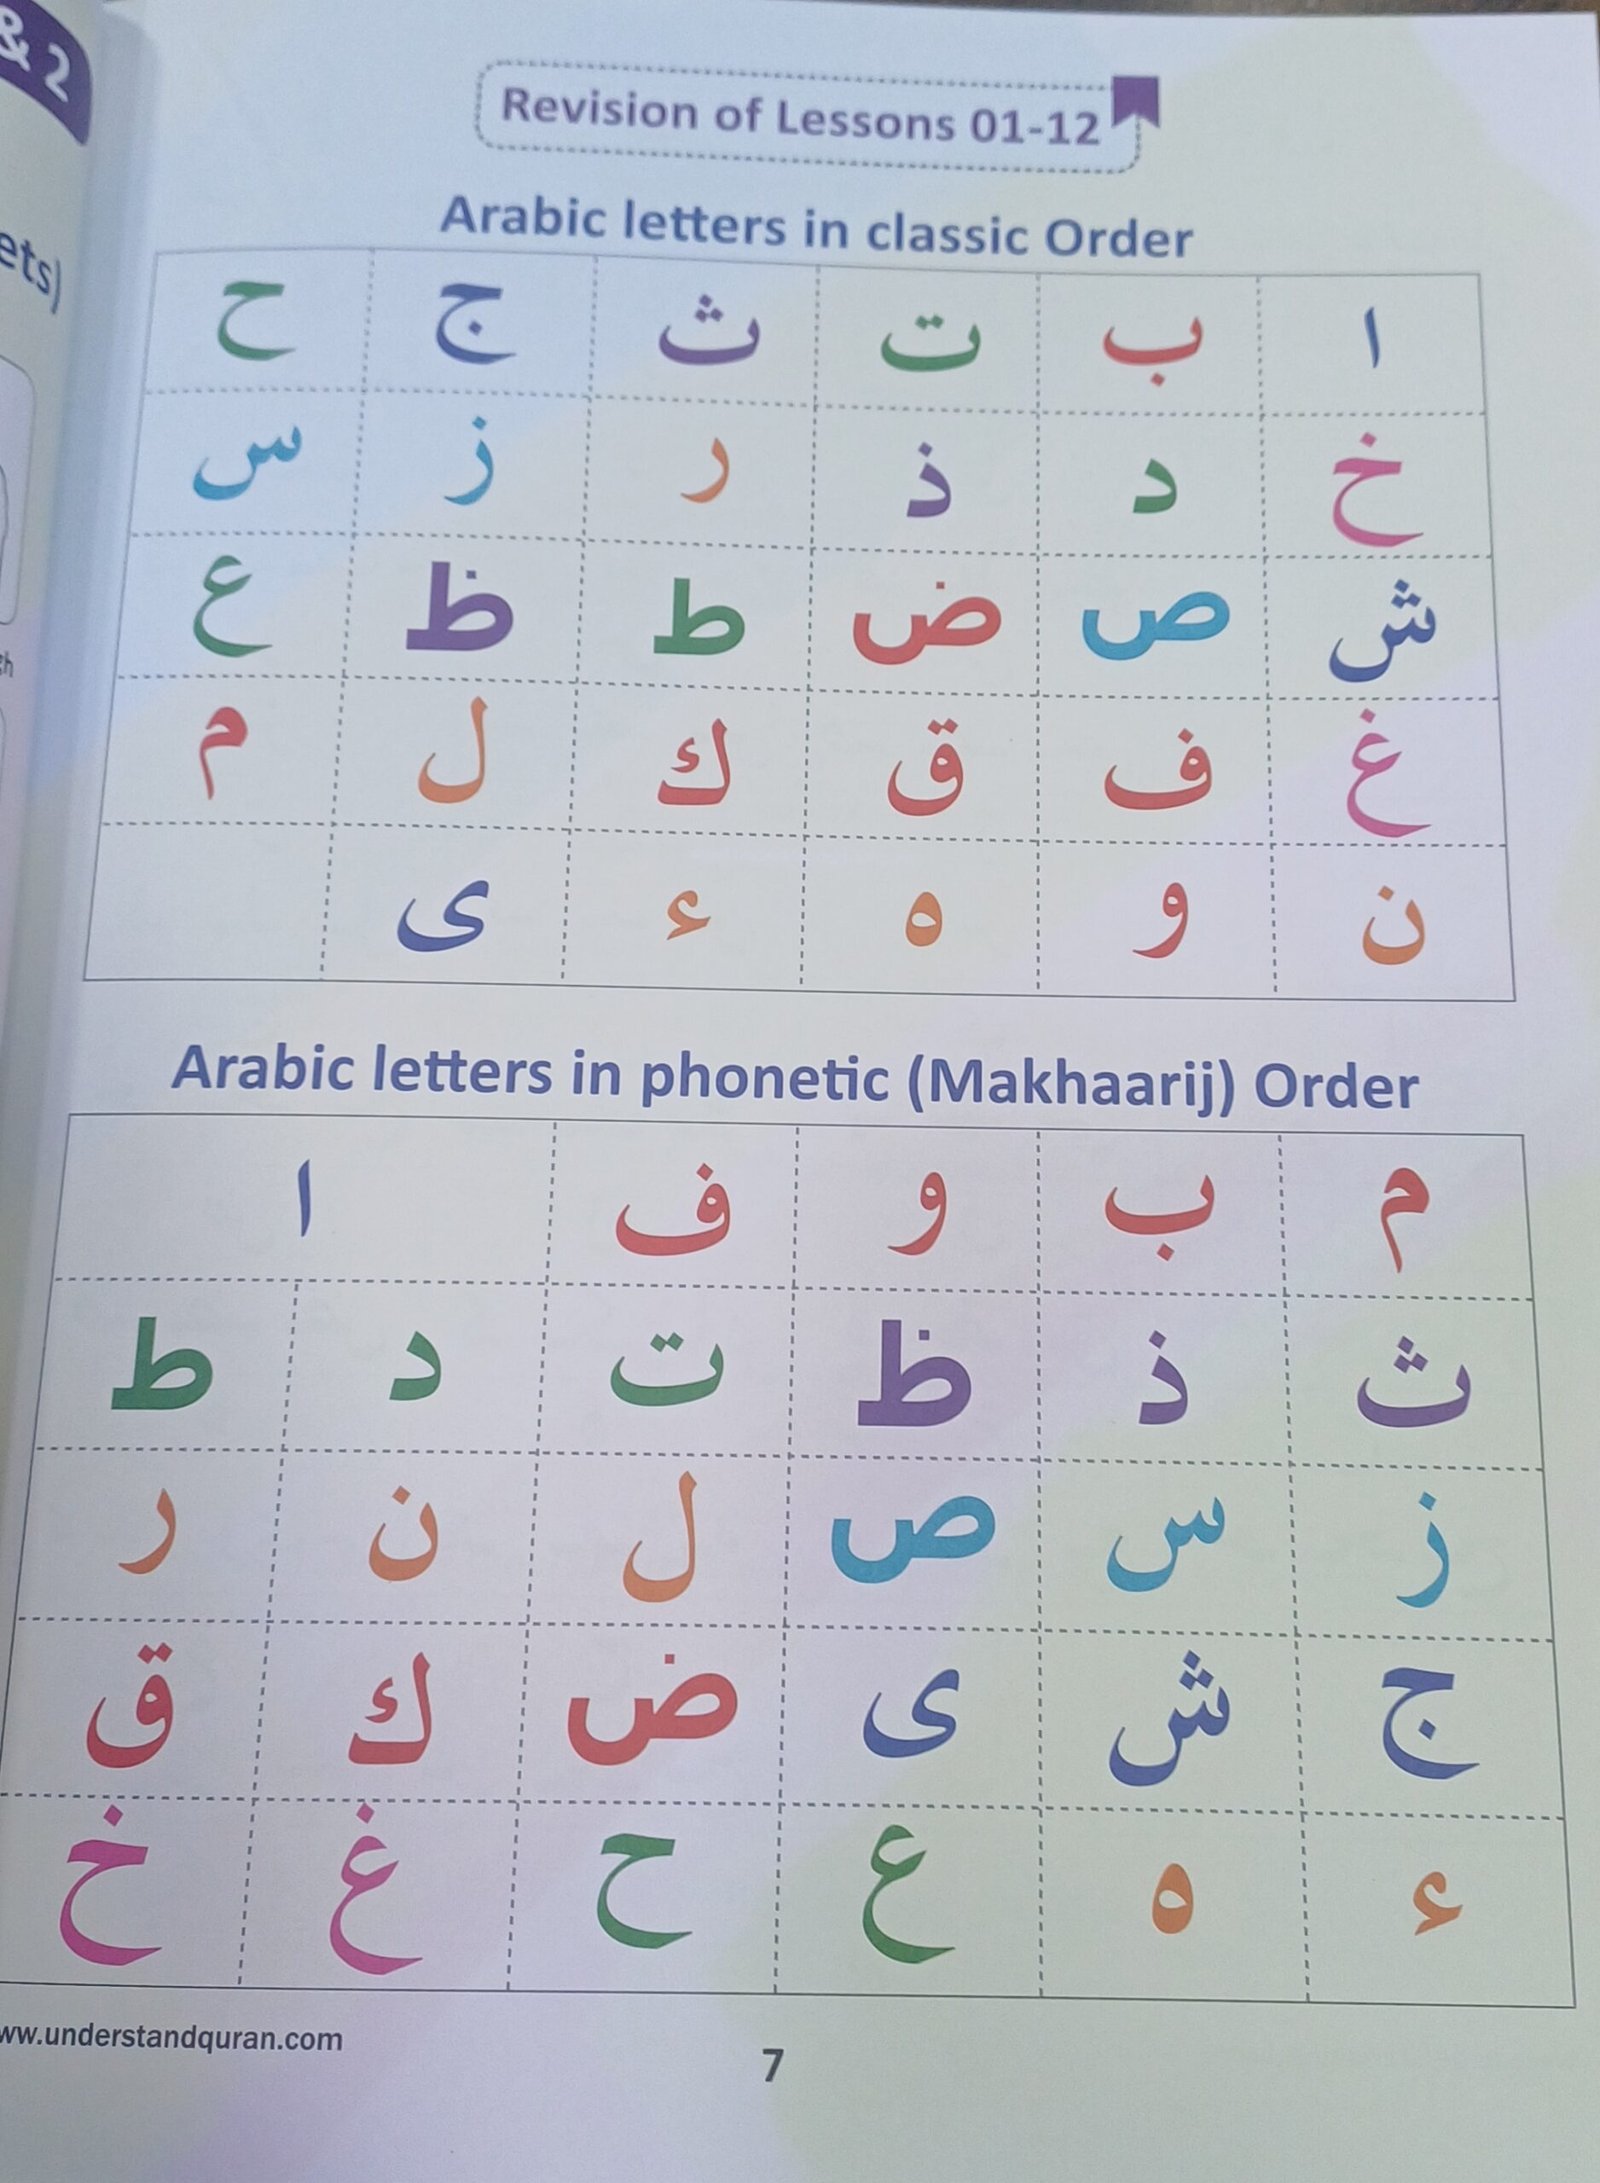 & 2
ets)
gh
Revision of Lessons 01-12
Arabic letters in classic Order
ا ب ت ث ج ح
خ د ذ ر ز س
ش ص ض ط ظ ع
غ ف ق ك ل م
ن و ه ء ى
Arabic letters in phonetic (Makhaarij) Order
م ب و ف ا
ث ذ ظ ت د ط
ز س ص ل ن ر
ج ش ى ض ك ق
ء ه ع ح غ خ
ww.understandquran.com
7